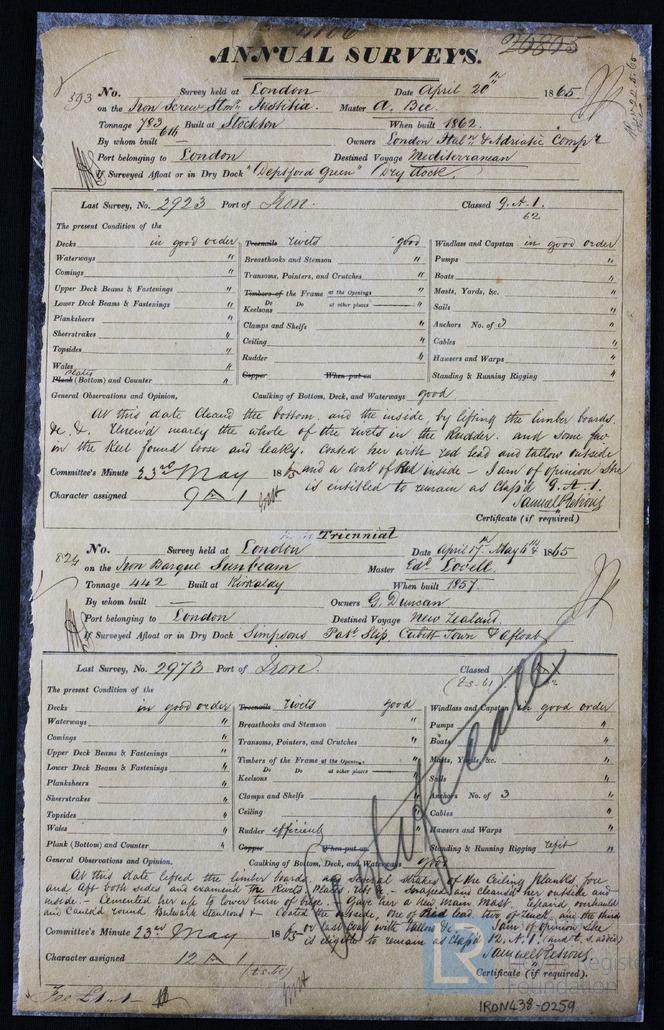 ANNUAL SURVEYS.
26805
593
No. Survey held at London Date April 20th 1865
on the Iron Screw Stmr Justitia. Master A. Bee.
Tonnage 783 Built at Stockton When built 1862.
616
By whom built — Owners London Italn & Adriatic Compy
Port belonging to London Destined Voyage Mediterranean
If Surveyed Afloat or in Dry Dock "Deptford Green" Dry Dock
Last Survey, No. 2923 Port of Iron. Classed 9. A. 1.
62
The present Condition of the
Decks in good order Treenails rivets good Windlass and Capstan in good order
Waterways " Breasthooks and Stemson " Pumps "
Comings " Transoms, Pointers, and Crutches " Boats "
Upper Deck Beams & Fastenings " Timbers of the Frame at the Openings " Masts, Yards, &c. "
Lower Deck Beams & Fastenings " Do Do at other places " Sails "
Keelsons
Planksheers " Clamps and Shelfs " Anchors No. of 3 "
Sheerstrakes " Ceiling " Cables "
Topsides " Rudder " Hawsers and Warps "
Wales " Copper When put on Standing & Running Rigging "
Plates
Plank (Bottom) and Counter "
General Observations and Opinion, Caulking of Bottom, Deck, and Waterways good
At this date Cleand the bottom. and the inside by lifting the limber boards.
&c. &. Renew'd nearly the whole of the rivets in the Rudder. and some few
in the Keel found loose and leaky. Coated her with red lead and tallow outside
and a coat of Red inside – I am of opinion She
Committee's Minute 23rd May 1865
is entitled to remain as Class'd 9. A. 1.
Character assigned 9 A 1
Samuel Pretious
Certificate (if required)
Triennial
824
No. Survey held at London Date April 17th May 4th 1865
on the Iron Barque Sunbeam Master Edd Lovell.
Tonnage 442 Built at Kirkaldy When built 1857.
By whom built — Owners G. Duncan
Port belonging to London Destined Voyage New Zealand.
If Surveyed Afloat or in Dry Dock Simpsons Patt Slip, Cubitt Town & afloat
Last Survey, No. 2973 Port of Iron. Classed
The present Condition of the
Decks in good order Treenails rivets good Windlass and Capstan in good order
Waterways " Breasthooks and Stemson " Pumps "
Comings " Transoms, Pointers, and Crutches " Boats "
Upper Deck Beams & Fastenings " Timbers of the Frame at the Openings " Masts, Yards, &c. "
Lower Deck Beams & Fastenings " Do Do at other places " Sails "
Keelsons
Planksheers " Clamps and Shelfs " Anchors No. of 3
Sheerstrakes " Ceiling " Cables "
Topsides " Rudder efficient Hawsers and Warps "
Wales " Copper When put on Standing & Running Rigging refit
Plank (Bottom) and Counter "
General Observations and Opinion, Caulking of Bottom, Deck, and Waterways good
At this date lifted the limber boards. and several strakes of the Ceiling planks fore
and aft both sides and examined the Rivets, Plates, ribs &. – Scraped and cleansed her outside and
inside. – Cemented her up to lower turn of bilge – gave her a new main mast. Repaird overhauld
and Caulk'd round Bulwark Stantions & – Coated the outside, one of Red lead two of Zinck, and the third
or last coat with tallow &c I am of opinion She
Committee's Minute 23rd May 1865
is eligible to remain as Class'd 12. A. 1.
Character assigned 12 A 1
Samuel Pretious
Certificate (if required).
Certificate
Fee £1..1
LR
Lloyd's Register
Foundation
IRON438-0259